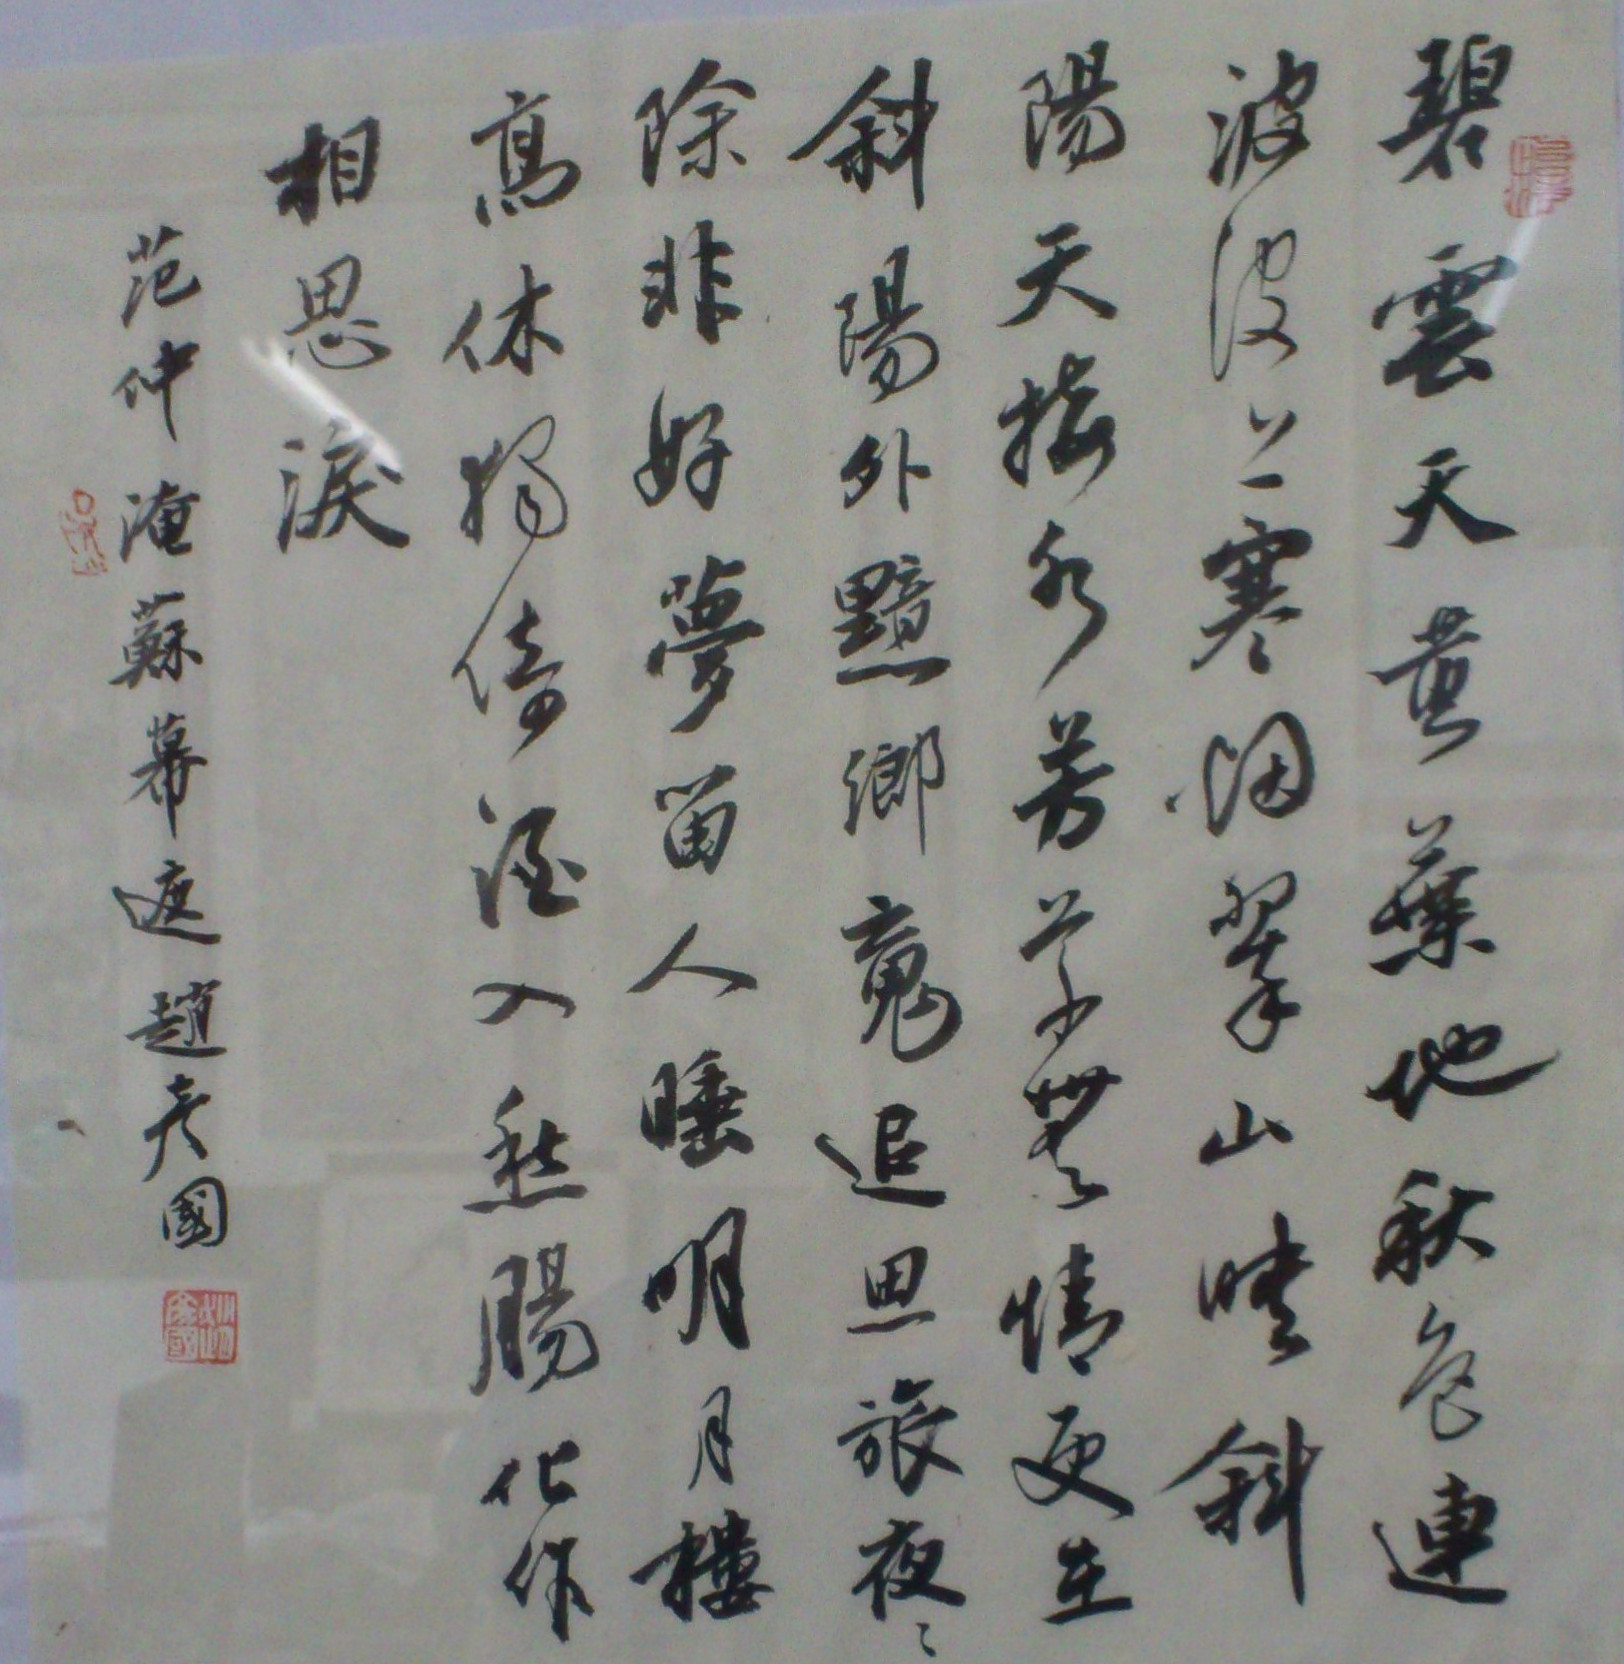 碧雲天黄葉地秋色連
波波上寒烟翠山映斜
陽天接水芳草無情更在
斜陽外黯鄉魂追思旅夜〻
除非好夢留人睡明月月樓
高休獨倚酒入愁腸化作
相思淚
范仲淹蘇幕遮趙彦國